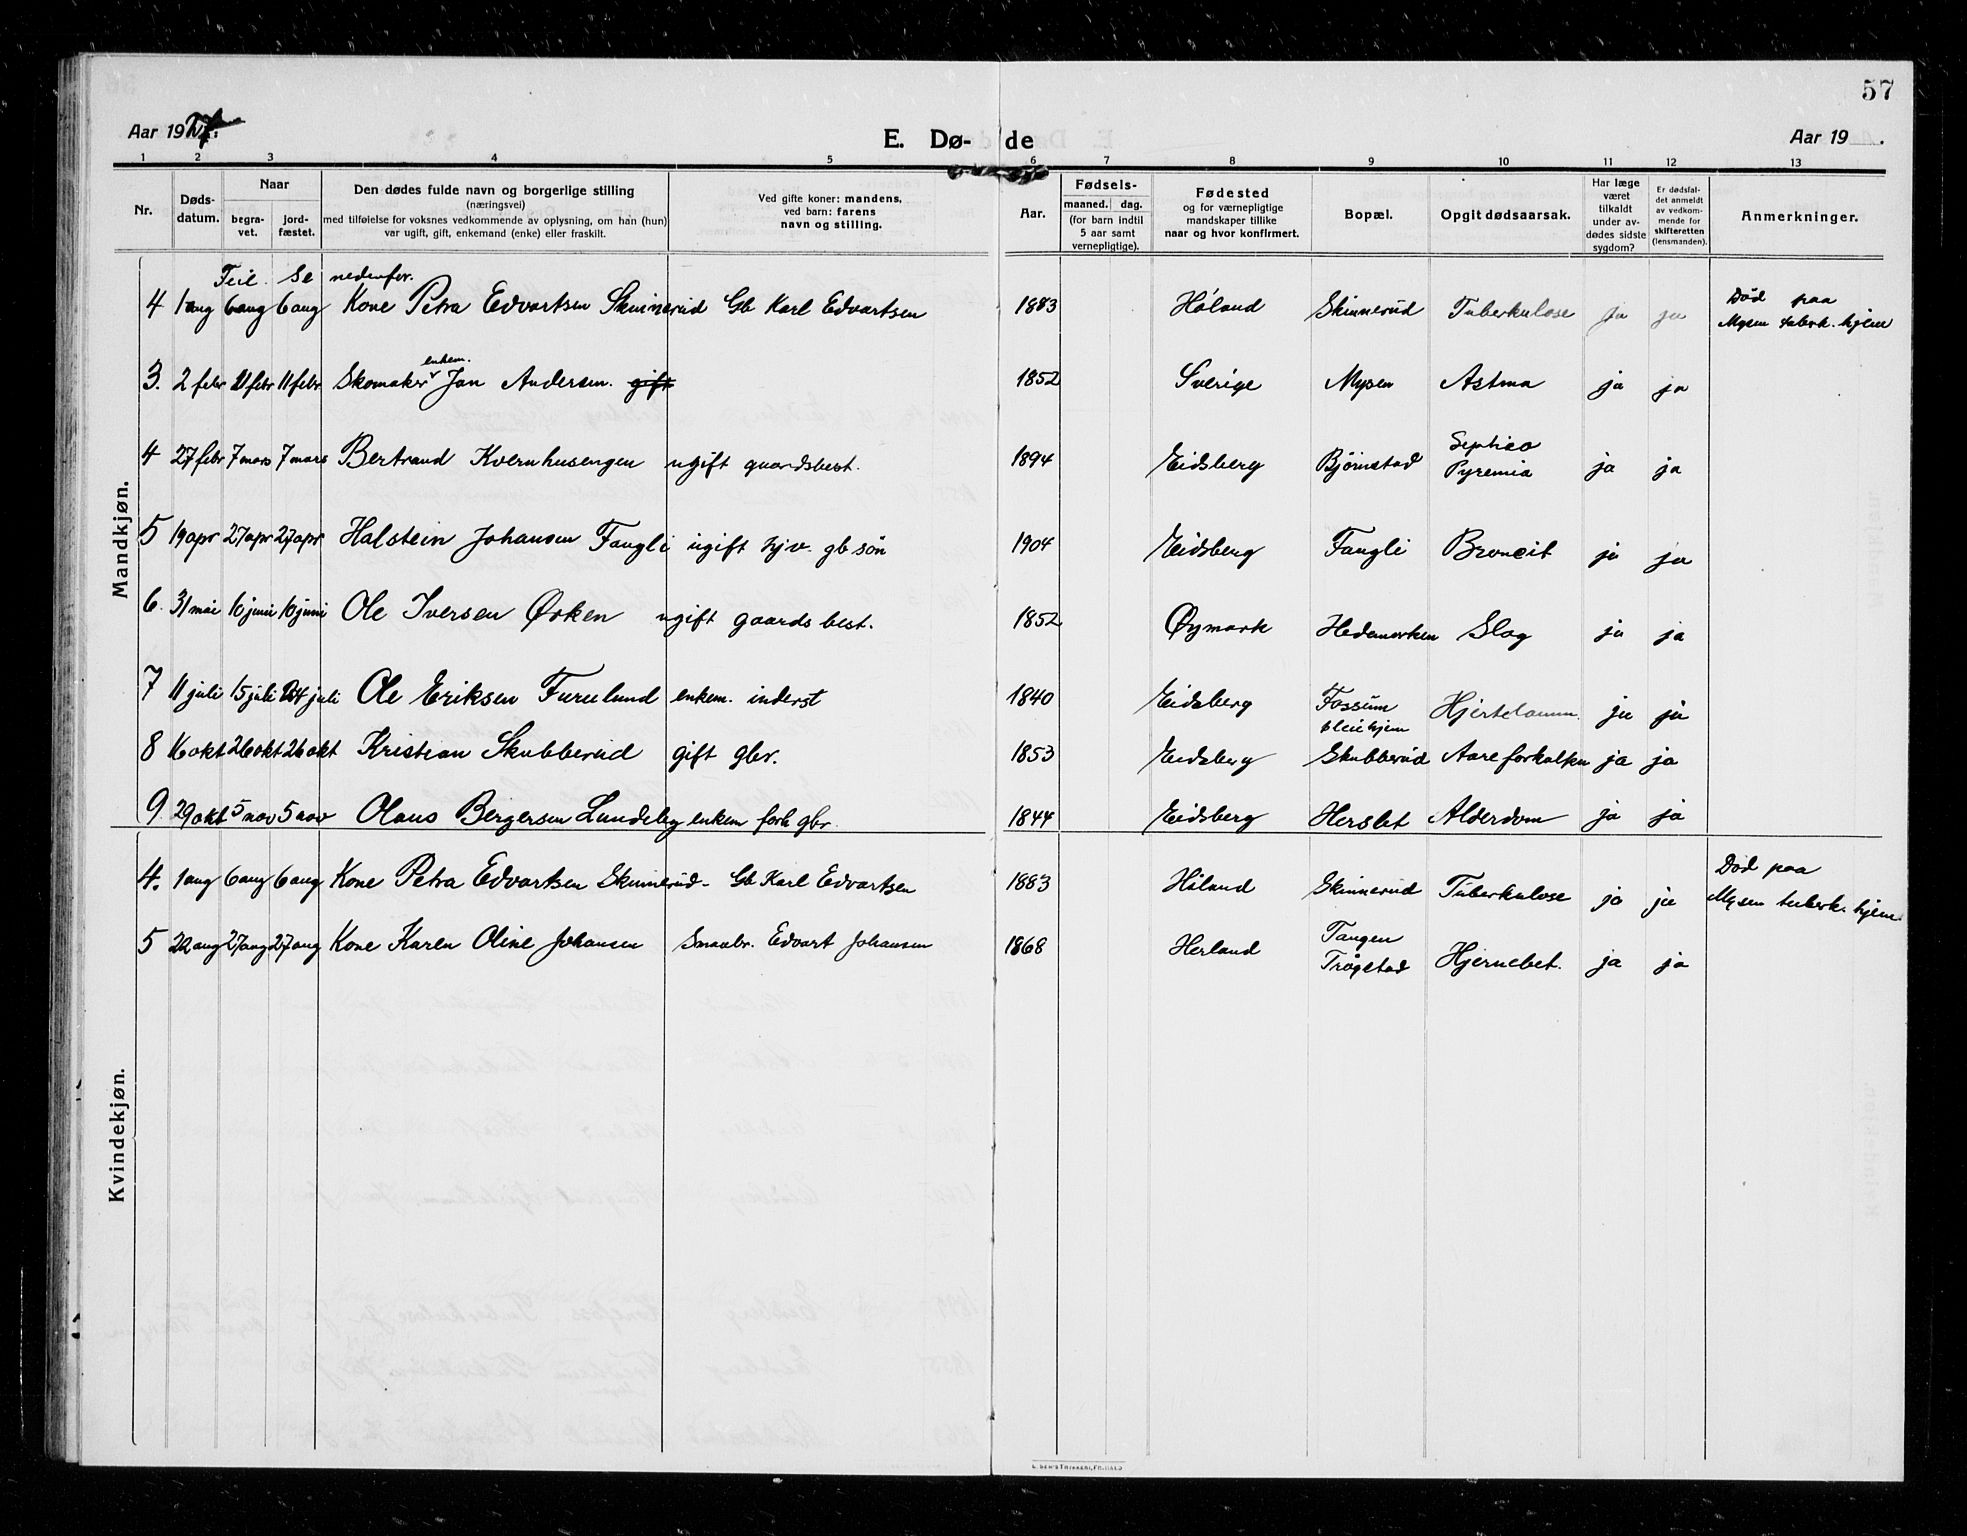 57
Aar 19 E. Dø- de Aar 19 .
1 2 3 4 5 6 7 8 9 10 11 12 13
Nr. Døds-datum. Naar begra-vet. jord-fæstet. Den dødes fulde navn og borgerlige stilling (næringsvei) med tilføielse for voksnes vedkommende av oplysning, om han (hun) var ugift, gift, enkemand (enke) eller fraskilt. Ved gifte koner: mandens, ved barn: farens navn og stilling. Aar. Fødsels- maaned. dag. (for barn indtil 5 aar samt vernepligtige). Fødested og for værnepligtige mandskaper tillike naar og hvor konfirmert. Bopæl. Opgit dødsaarsak. Har læge været tilkaldt under av-dødes sidste sygdom? Er dødsfal-det anmeldt av vedkom-mende for skifteretten (lensmanden). Anmerkninger.
Mandkjøn.
Feil. Se nedenfor.
4 1 aug 6 aug 6 aug Kone Petra Edvartsen Skinnerud Gb Karl Edvartsen 1883 Høland Skinnerud Tuberkulose ja ja Død paa
Mysen tuberk. hjem
enkem.
3. 2 febr 11 febr 11 febr Skomaker Jan Andersen. gift 1852 Sverige Mysen Astma ja ja
4 27 febr 7 mars 7 mars Bertrand Kvernhusengen ugift gaardsbest. 1894 Eidsberg Bjørnstad Septico Pyremia ja ja
5 19 apr 27 apr 27 apr Halstein Johansen Fangli ugift hjv. gb søn 1904 Eidsberg Fangli Broncit ja ja
6. 31 mai 10 juni 10 juni Ole Iversen Ørken ugift gaardsbest. 1852 Øymark Hedemarken Slag ja ja
7 11 juli 15 juli 24 juli Ole Eriksen Furulund enkem. inderst 1840 Eidsberg Fossum pleiehjem Hjertelamm. ja ja
8 16 okt 26 okt 26 okt Kristian Skubberud gift gbr. 1853 Eidsberg Skubberud Aareforkalkn ja ja
9. 29 okt 5 nov 5 nov Olaus Bergersen Lundeby enkem forh gbr. 1844 Eidsberg Herslet Alderdom ja ja
Kvindekjøn.
4. 1 aug 6 aug 6 aug Kone Petra Edvartsen Skinnerud - Gb Karl Edvartsen 1883 Høland Skinnerud Tuberkulose ja ja Død paa
Mysen tuberk. hjem
5 22 aug 27 aug 27 aug Kone Karen Oline Johansen Smaabr. Edvart Johansen 1868 Herland Tangen Trøgstad Hjernebet. ja ja